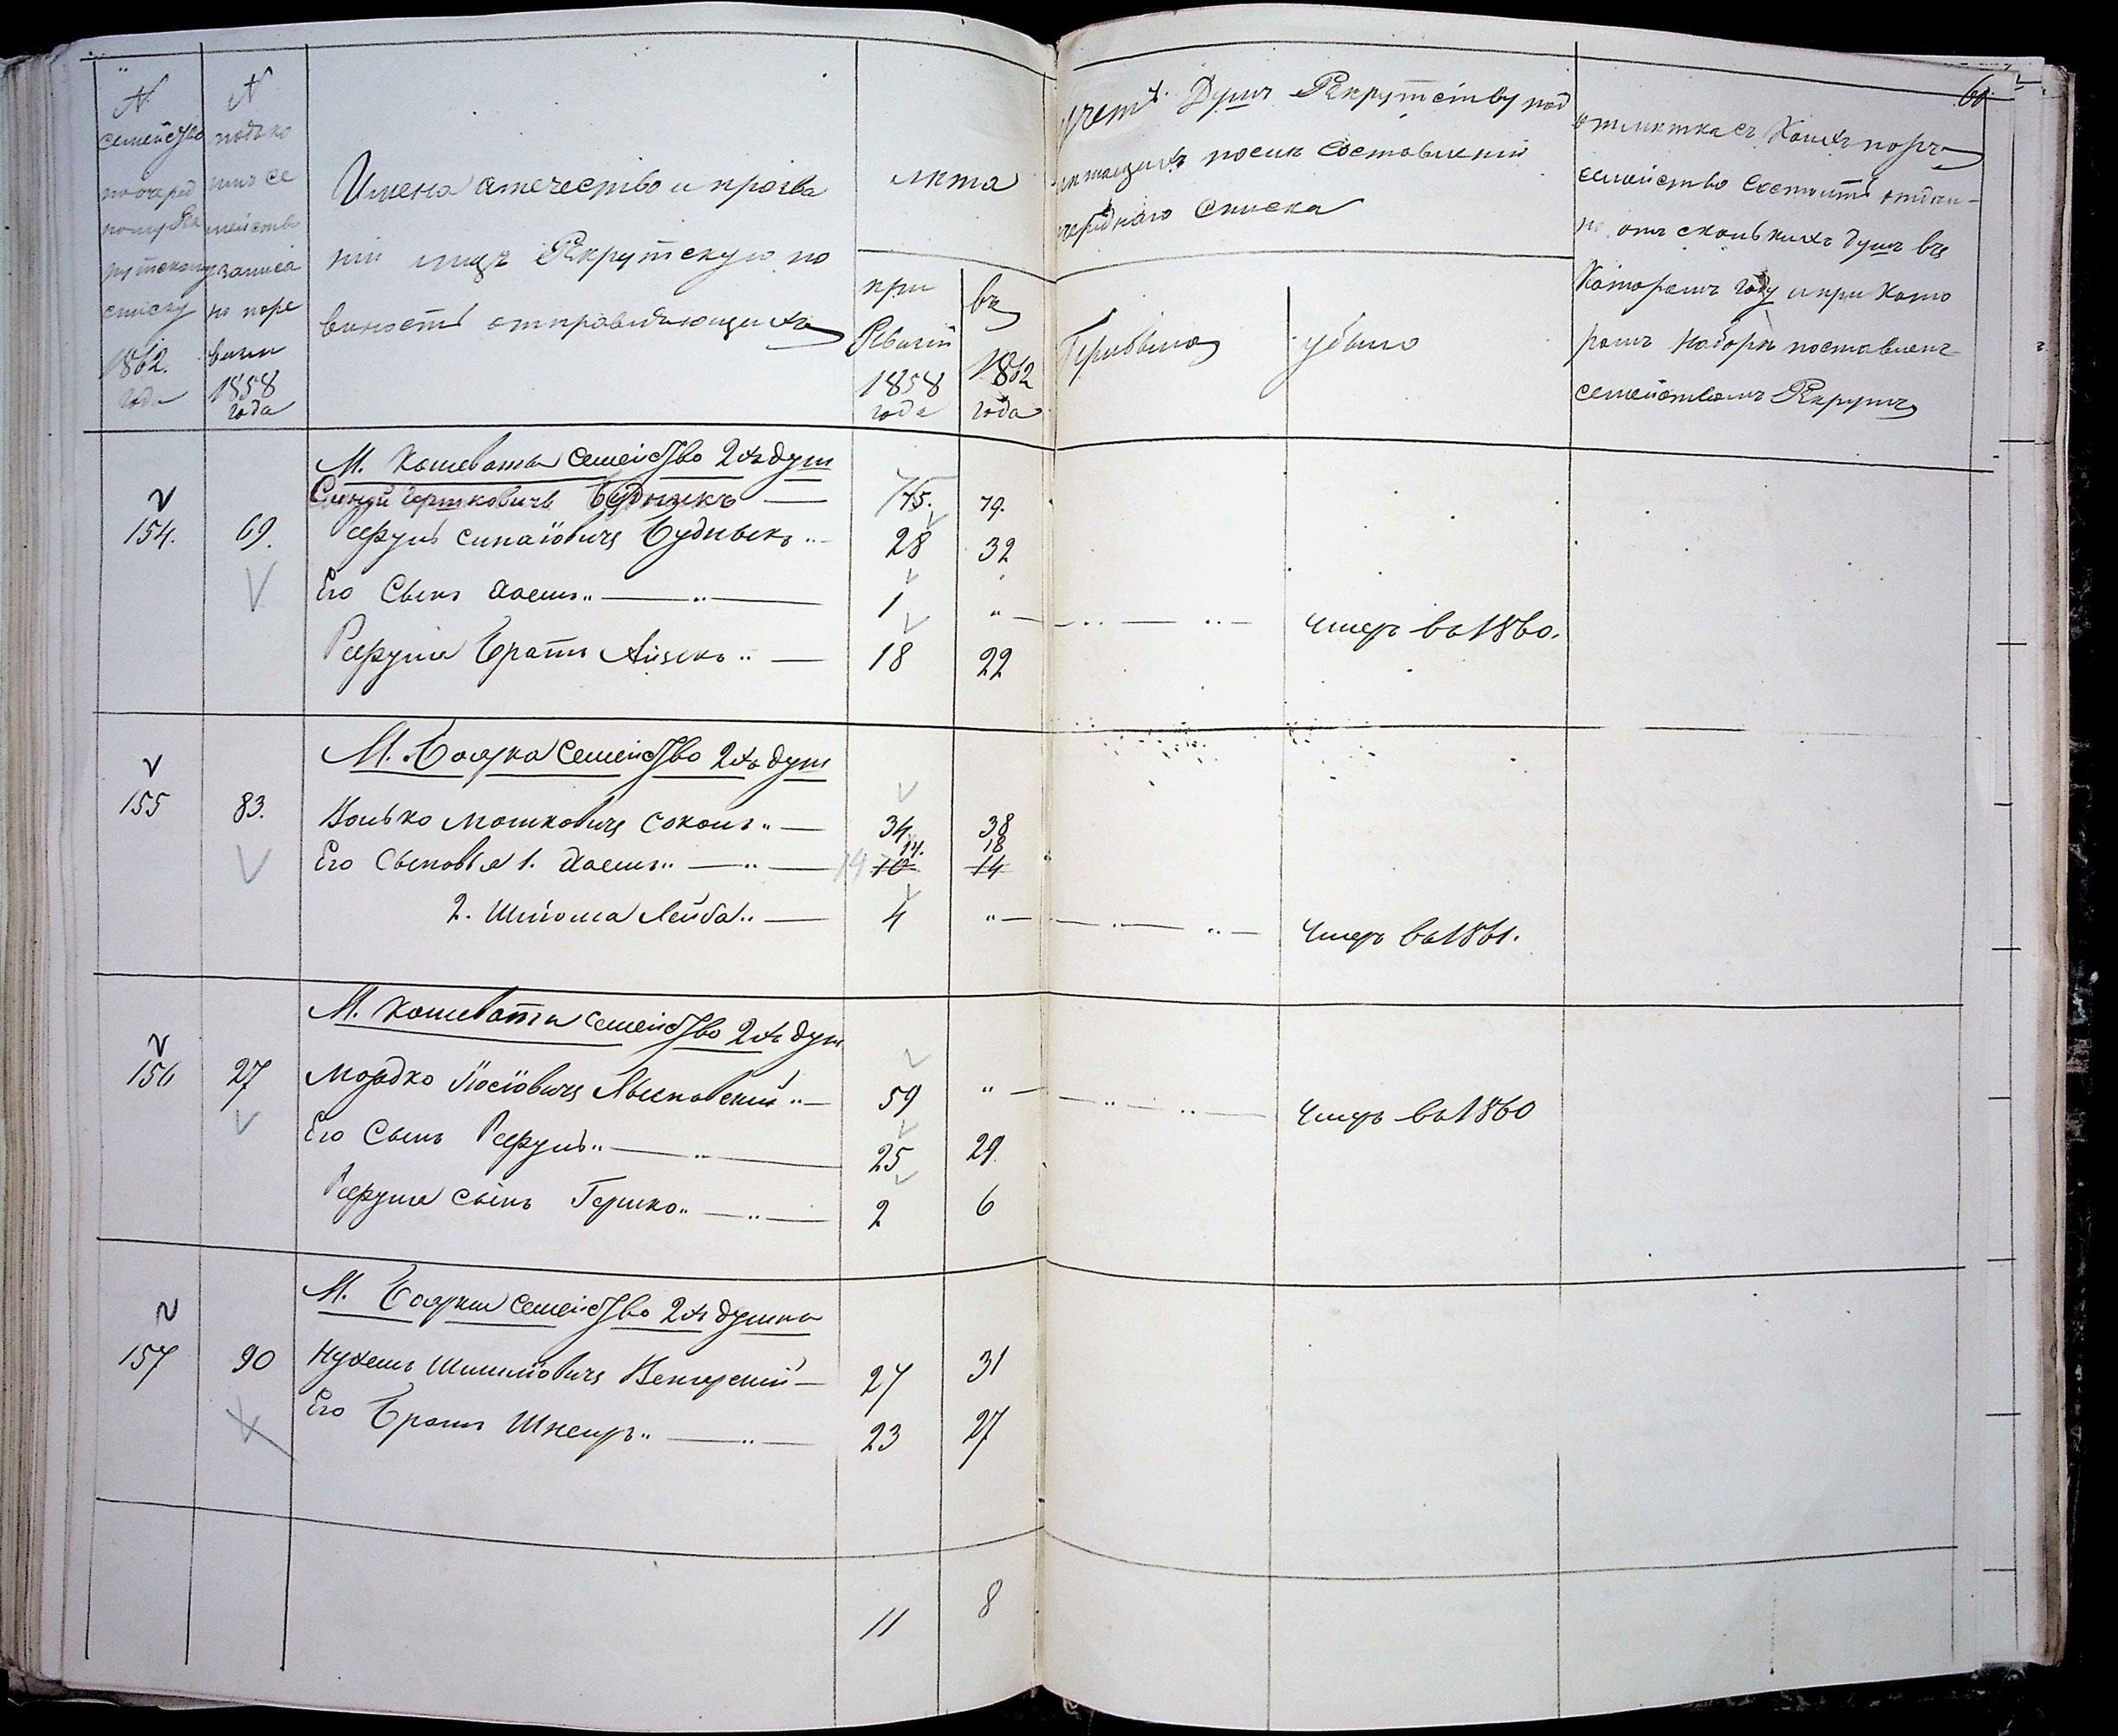 №
семейства
по очеред
ному Рек
рутскому
списку
1862.
года
№
подъко
имъ се
мейство
записа
но по ре
визіи
1858
года
Имена отечество и прозва
ніи лицъ Рекрутскую по
винность отправляющихъ
лѣта
при
Ревизіи
1858
года
въ
1862
года
счетъ Душъ Рекрутству под
лежащихъ послѣ составленія
очереднаго списка
Прибыло
убыло
60
отмѣтка съ Коихъ поръ
семейство состоитъ отдѣл-
но отъ сколькихъ душъ въ
Которомъ году и при Кото
ромъ Наборѣ поставленъ
семействомъ Рекрутъ
М. Кошеваты семейство 2хъ душ
Синай Бершковичъ Буднякъ — 75. 79.
154. 69. Рефулъ Синаіовичъ Буднякъ — 28 32
Его Сынъ Хаемъ — 1 " — умеръ въ 1860.
Рефула Братъ Айзекъ — 18 22
М. Боярка семейство 2хъ душ
155 83. Волько Мошковичъ Соколъ — 34 38
14. 18
Его Сыновья 1. Хаемъ — 14 10 14
2. Шліома Лейба — 4 " — умеръ въ 1861.
М. Кошеваты семейство 2хъ душ
156 27 Мордко Іосіовичъ Лысковскій — 59 " — умеръ въ 1860
Его Сынъ Рефулъ — 25 29.
Рефула сынъ Гершко — 2 6
М. Боярки семейство 2хъ душъ
157 90 Нухемъ Шлиміовичъ Венгерскій — 27 31
Его Братъ Шнеиръ — 23 27
11 8